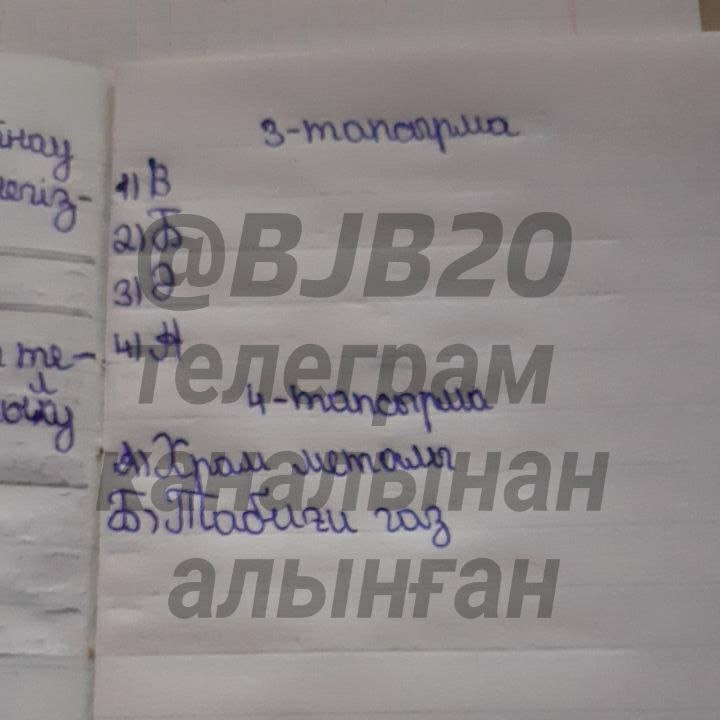 йнау
негіз-
и те-
3-тапсырма
1) В
2) Б
3) Ә
4) А
4-тапсырма
А) Хром металы
Б) Табиғи газ
@BJB20
телеграм
каналынан
алынған